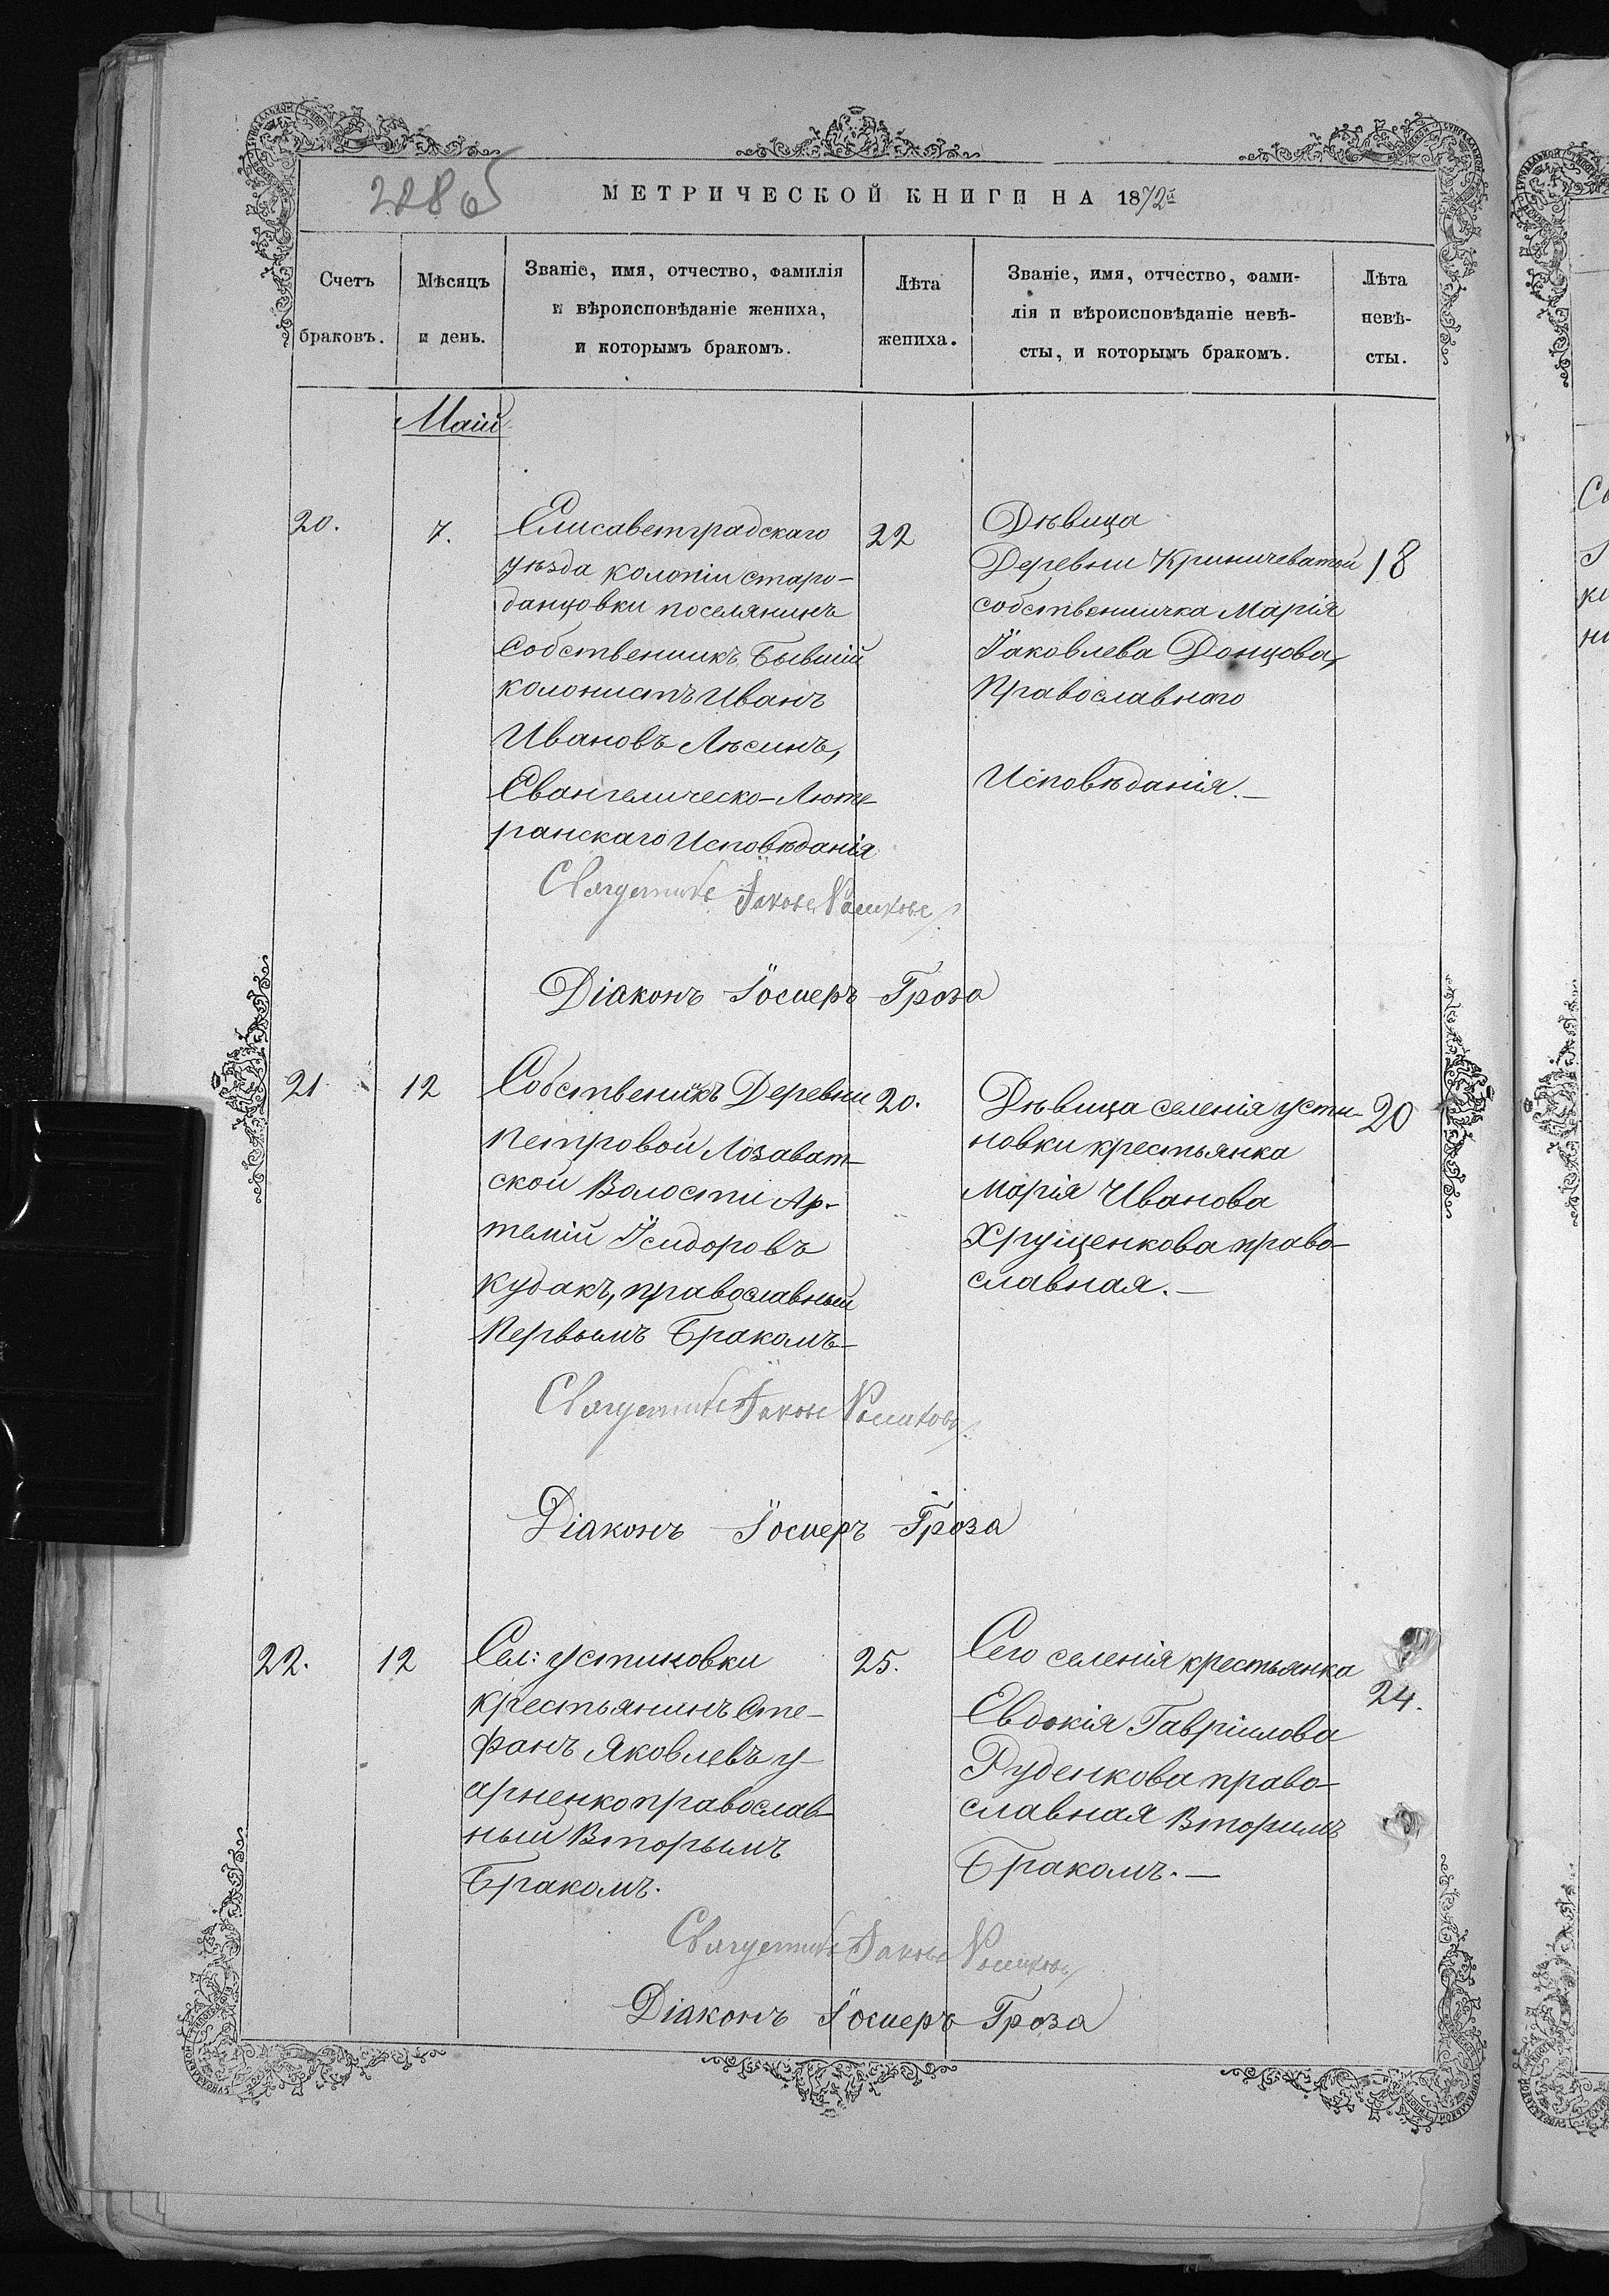 2286
МЕТРИЧЕСКОЙ КНИГИ НА 1872й
Счетъ
браковъ.
Мѣсяцъ
и день.
Званіе, имя, отчество, фамилія
и вѣроисповѣданіе жениха,
и которымъ бракомъ.
Лѣта
жениха.
Званіе, имя, отчество, фами-
лія и вѣроисповѣданіе невѣ-
сты, и которымъ бракомъ.
Лѣта
невѣ-
сты.
Маій
20.
7.
Елисаветградскаго
уѣзда колоніи старо-
данцовки поселянинъ
Собственникъ Бывшій
колонистъ Иванъ
Ивановъ Лѣсинъ,
Евангелическо-Люте-
ранскаго Исповѣданія
22
Дѣвица
Деревни Криничеватой
собственничка Марія
Іаковлева Донцова,
Православнаго
Исповѣданія.—
18
Іаковъ
Діаконъ Іосиеръ Гроза
21
12
Собственикъ Деревни
Петровой Лозават-
ской Волости Ар-
темій Ісидоровъ
кудакъ, православный
Первымъ Бракомъ—
20.
Дѣвица селенія усти-
новки крестьянка
Марія Иванова
Хрущенкова право-
славная.—
20
Іаковъ
Діаконъ Іосиеръ Гроза
22.
12
Сел: устиновки
крестьянинъ Сте-
фанъ Яковлевъ у-
арненко православ-
ный Вторымъ
Бракомъ.
25.
Сего селенія крестьянка
Евдокія Гавріилова
Руденкова право-
славная Вторимъ
Бракомъ.—
24.
Іаковъ
Діаконъ Іосиеръ Гроза